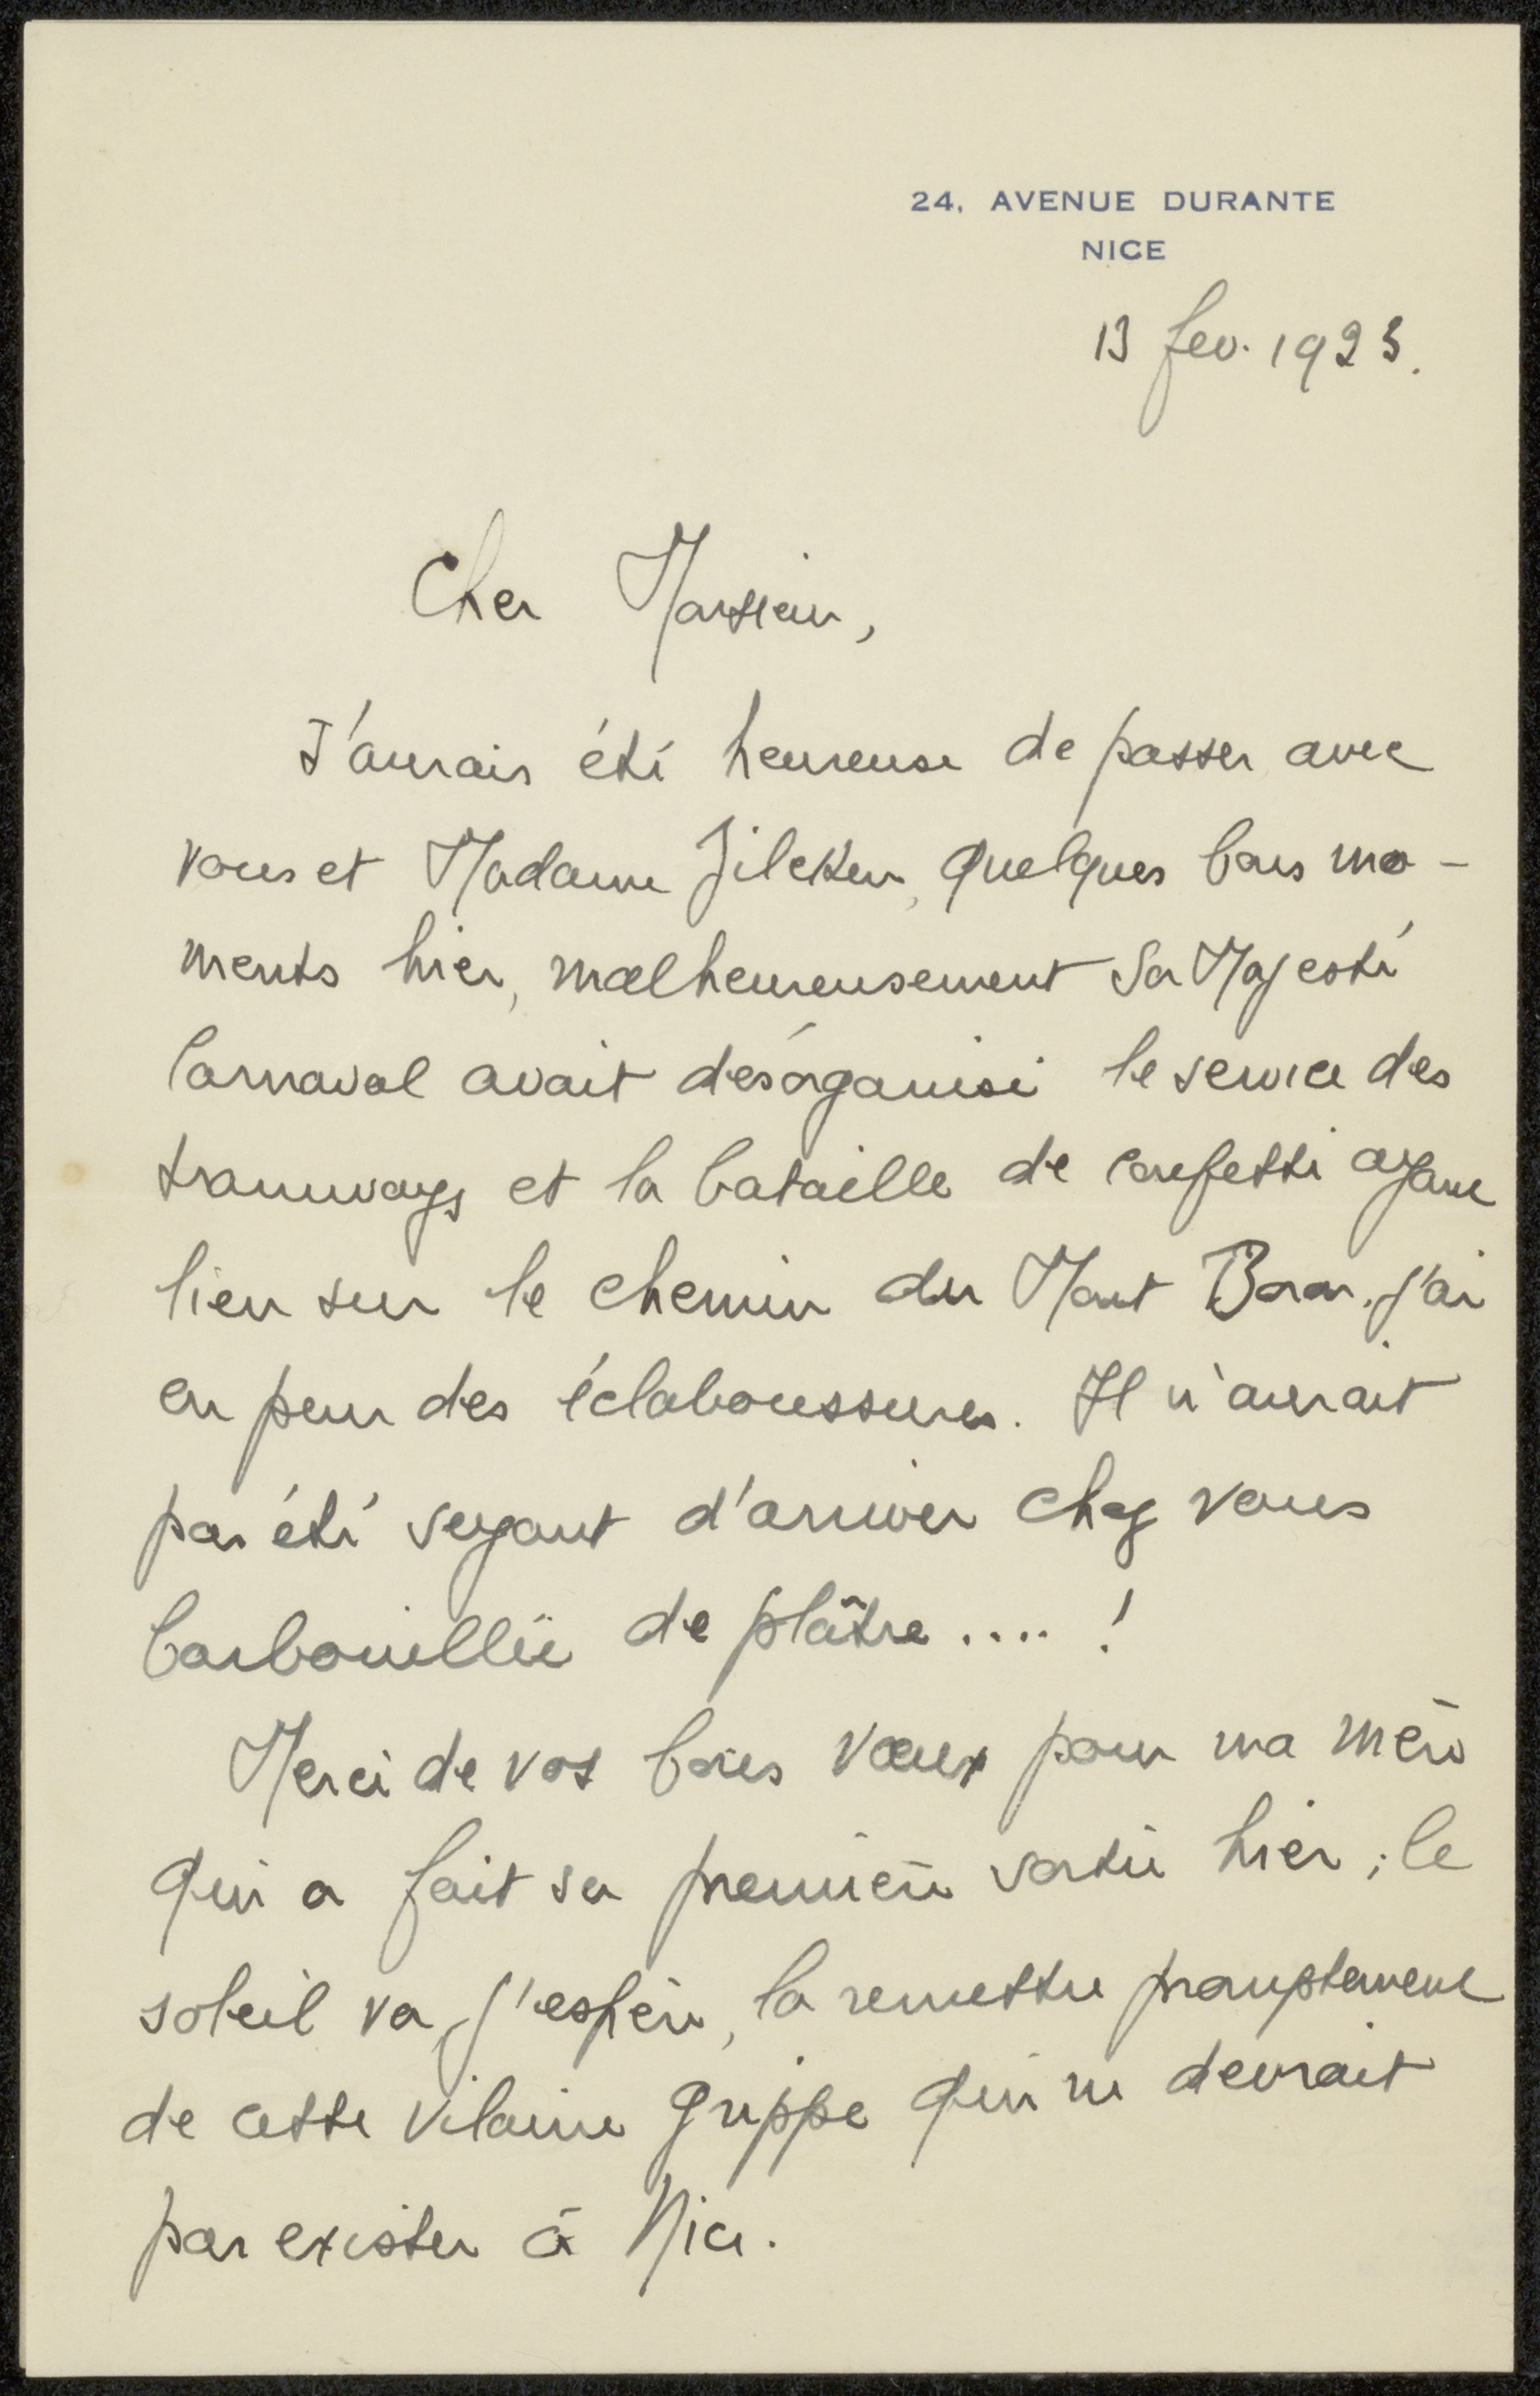 24, AVENUE DURANTE
NICE
13 fev. 1923.
Cher Monsieur,
J'aurais été heureuse de passer avec
vous et Madame Zilcken, quelques bons mo-
ments hier, malheureusement Sa Majesté
Carnaval avait désorganisé le service des
tramways et la bataille de confetti ayant
lieu sur le chemin du Mont Boron, j'ai
eu peur des éclaboussures. Il n'aurait
pas été seyant d'arriver chez vous
barbouillée de plâtre .... !
Merci de vos bons vœux pour ma mère
qui a fait sa première sortie hier ; le
soleil va, j'espère, la remettre promptement
de cette vilaine grippe qui ne devrait
pas exister à Nice.